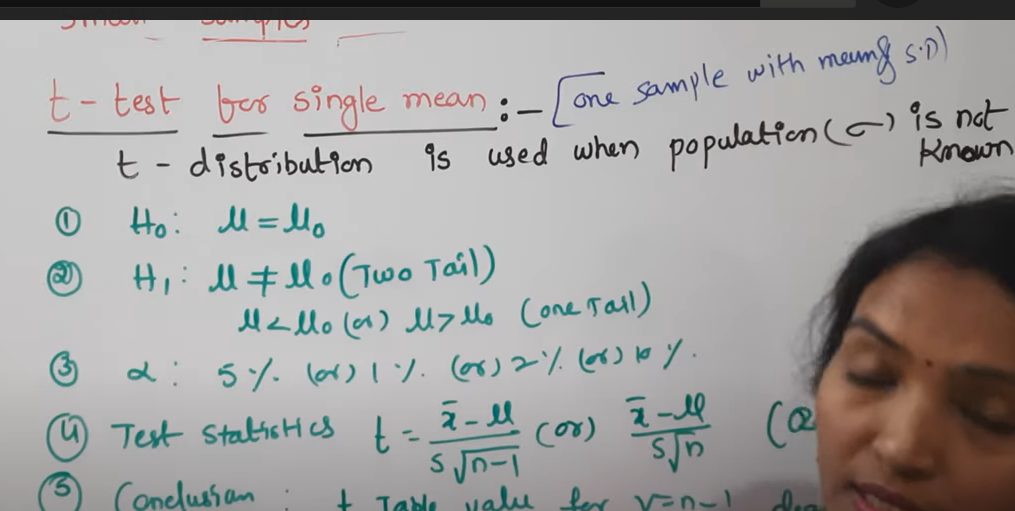 Small Samples
t - test for single mean :- [one sample with mean & S.D)
t - distribution is used when population (σ) is not known
① H₀: μ = μ₀
② H₁: μ ≠ μ₀ (Two Tail)
μ < μ₀ (or) μ > μ₀ (one Tail)
③ α: 5 %. (or) 1 %. (or) 2 %. (or) 10 %.
④ Test statistics t = x̄ - μ / s√n-1 (or) x̄ - μ / s√n (or
⑤ Conclusion : t Table value for ν = n-1